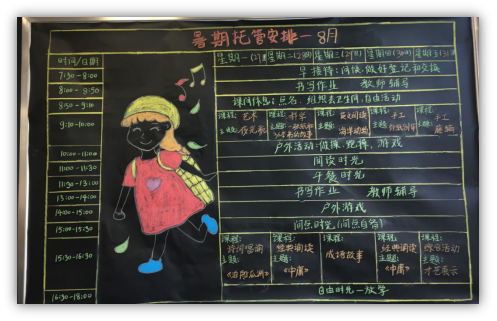 暑期托管安排—8月
时间/日期 星期一(27日) 星期二(28日) 星期三(29日) 星期四(30日) 星期五(31日)
7:30-8:00 早接待:问候、做好登记和交接
8:00-8:50 书写作业 教师辅导
8:50-9:10 课间休息:点名、组织去卫生间、自由活动
9:10-10:00
课程: 艺术 课程: 科学 课程: 英文阅读 课程: 手工 课程: 手工
主题: 主题: 主题: 海洋动物 主题: 主题:
10:00-11:00 户外活动:
11:00-11:30 阅读时光
11:30-13:00 午餐时光
13:00-14:00 书写作业 教师辅导
14:00-15:00 户外游戏
15:00-15:30 间点时光(间点自备)
15:30-16:30
课程: 课程: 成语故事 课程: 课程:
诗词唱诵 经典阅读 经典阅读 综合活动
主题: 主题: 主题: 主题:
《中庸》 《中庸》 才艺展示
16:30-18:00 自由时光—放学